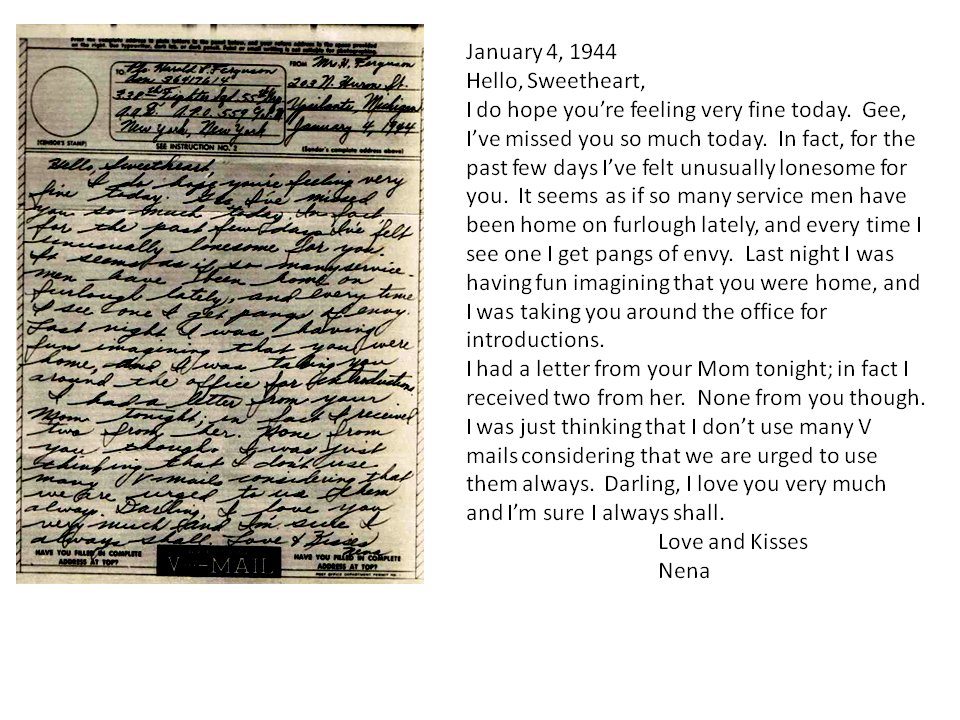 Print the complete address in plain letters in the panel below, and your return address in the space provided
on the right. Use typewriter, dark ink, or dark pencil. Faint or small writing is not suitable for photographing.
TO: Pfc. Harold L. Ferguson
36417614
338th Fighter Sqd. 55th
A.P.O. 559
New York, New York
FROM Mrs. H. Ferguson
203 N. Huron St.
Ypsilanti, Michigan
January 4, 1944
(CENSOR'S STAMP)
SEE INSTRUCTION NO. 2
(Sender's complete address above)
Hello, Sweetheart,
I do hope you're feeling very
fine today. Gee, I've missed
you so much today. In fact,
for the past few days I've felt
unusually lonesome for you.
It seems as if so many service
men have been home on
furlough lately, and every time
I see one I get pangs of envy.
Last night I was having
fun imagining that you were
home, and I was taking you
around the office for introductions.
I had a letter from your
Mom tonight; in fact I received
two from her. None from
you though. I was just
thinking that I don't use
many V mails considering that
we are urged to us them
always. Darling, I love you
very much and I'm sure I
always shall. Love & Kisses
Nena
HAVE YOU FILLED IN COMPLETE
ADDRESS AT TOP?
V-MAIL
HAVE YOU FILLED IN COMPLETE
ADDRESS AT TOP?
POST OFFICE DEPARTMENT PERMIT NO.
January 4, 1944
Hello, Sweetheart,
I do hope you're feeling very fine today. Gee,
I've missed you so much today. In fact, for the
past few days I've felt unusually lonesome for
you. It seems as if so many service men have
been home on furlough lately, and every time I
see one I get pangs of envy. Last night I was
having fun imagining that you were home, and
I was taking you around the office for
introductions.
I had a letter from your Mom tonight; in fact I
received two from her. None from you though.
I was just thinking that I don't use many V
mails considering that we are urged to use
them always. Darling, I love you very much
and I'm sure I always shall.
Love and Kisses
Nena